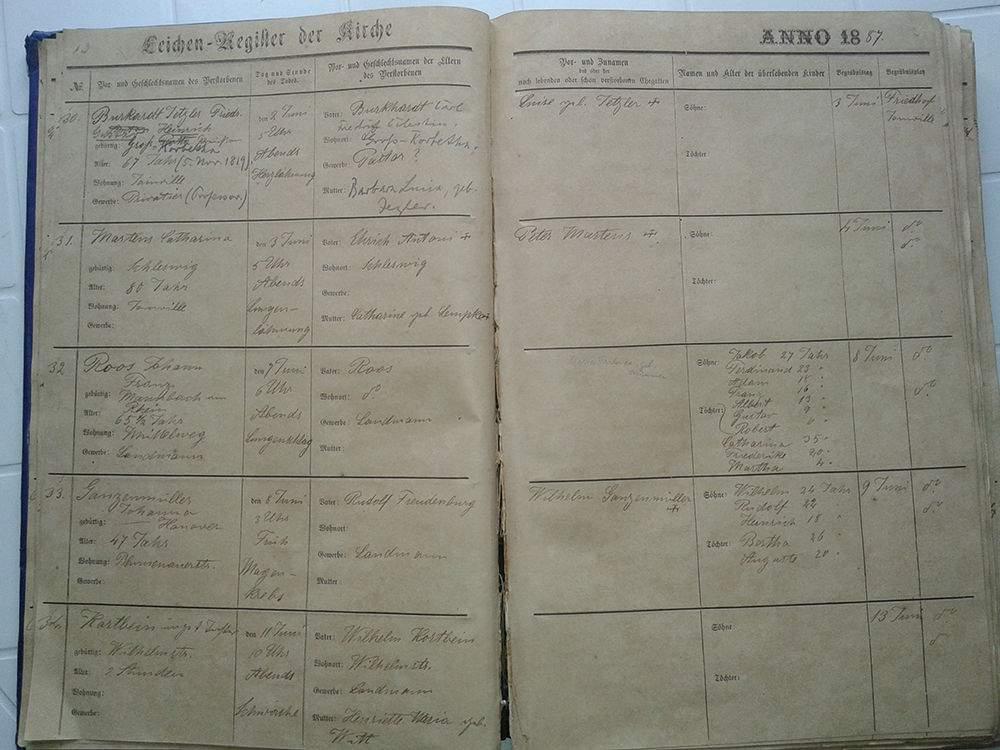 Leichen-Register der Kirche
№
Vor- und Geschlechtsnamen des Verstorbenen
Tag und Stunde des Todes.
Vor- und Geschlechtsnamen der Eltern des Verstorbenen
30.
Burkhardt Tetzler Friedr.
Heinrich
gebürtig: Groß-Korbetha
Alter: 67 Jahr (5. Nov. 1819)
Wohnung: Joinville
Gewerbe: Privatier (Professor)
den 2 Juni
5 Uhr
Abends
Herzlähmung
Vater: Burkhardt Carl
Wohnort: Groß-Korbetha
Gewerbe: Pastor ?
Mutter: Barbara Luisa, geb.
31.
Martens Catharina
gebürtig: Schleswig
Alter: 80 Jahr
Wohnung: Joinville
Gewerbe:
den 3 Juni
5 Uhr
Abends
Lungen-
lähmung
Vater: Ehrich Antoni +
Wohnort: Schleswig
Gewerbe:
Mutter: Catharine geb. Lempke +
32
Roos Johann
Franz
gebürtig: Mannbach am
Rhein
Alter: 65 ½ Jahr
Wohnung: Mittelweg
Gewerbe: Landmann
den 7 Juni
6 Uhr
Abends
Lungenschlag
Vater: Roos
Wohnort: do
Gewerbe: Landmann
Mutter:
33.
Ganzenmüller
Johanna
gebürtig: — Hanover
Alter: 47 Jahr
Wohnung: Blumenauerstr.
Gewerbe:
den 8 Juni
3 Uhr
Früh
Magen-
krebs
Vater: Rudolf Freudenburg
Wohnort:
Gewerbe: Landmann
Mutter:
34.
Kortbein
gebürtig: Wilhelmstr.
Alter: 2 Stunden
Wohnung:
Gewerbe:
den 11 Juni
10 Uhr
Abends
Schwäche
Vater: Wilhelm Kortbein
Wohnort: Wilhelmstr.
Gewerbe: Landmann
Mutter: Henriette Maria geb.
Witt
ANNO 1887.
Vor- und Zunamen
des oder der
noch lebenden oder schon verstorbenen Ehegatten
Namen und Alter der überlebenden Kinder
Begräbnistag
Begräbnisplatz
Luise geb. Tetzler +
Söhne:
Töchter:
3 Juni
Friedhof
Joinville
Peter Martens +
Söhne:
Töchter:
Juni
do
do
Söhne: Jakob 27 Jahr
Ferdinand 23 "
Adam 18 "
Franz 16 "
Albert 13 "
Töchter: Gustav 9 "
Robert 6 "
Catharina 35 "
Friederike 20 "
Martha 4 "
8 Juni
do
do
Wilhelm Ganzenmüller +
Söhne: Wilhelm 24 Jahr
Rudolf 22
Heinrich 18 "
Töchter: Bertha 26 "
Auguste 20 "
9 Juni
do
do
Söhne
Töchter:
13 Juni
do
do